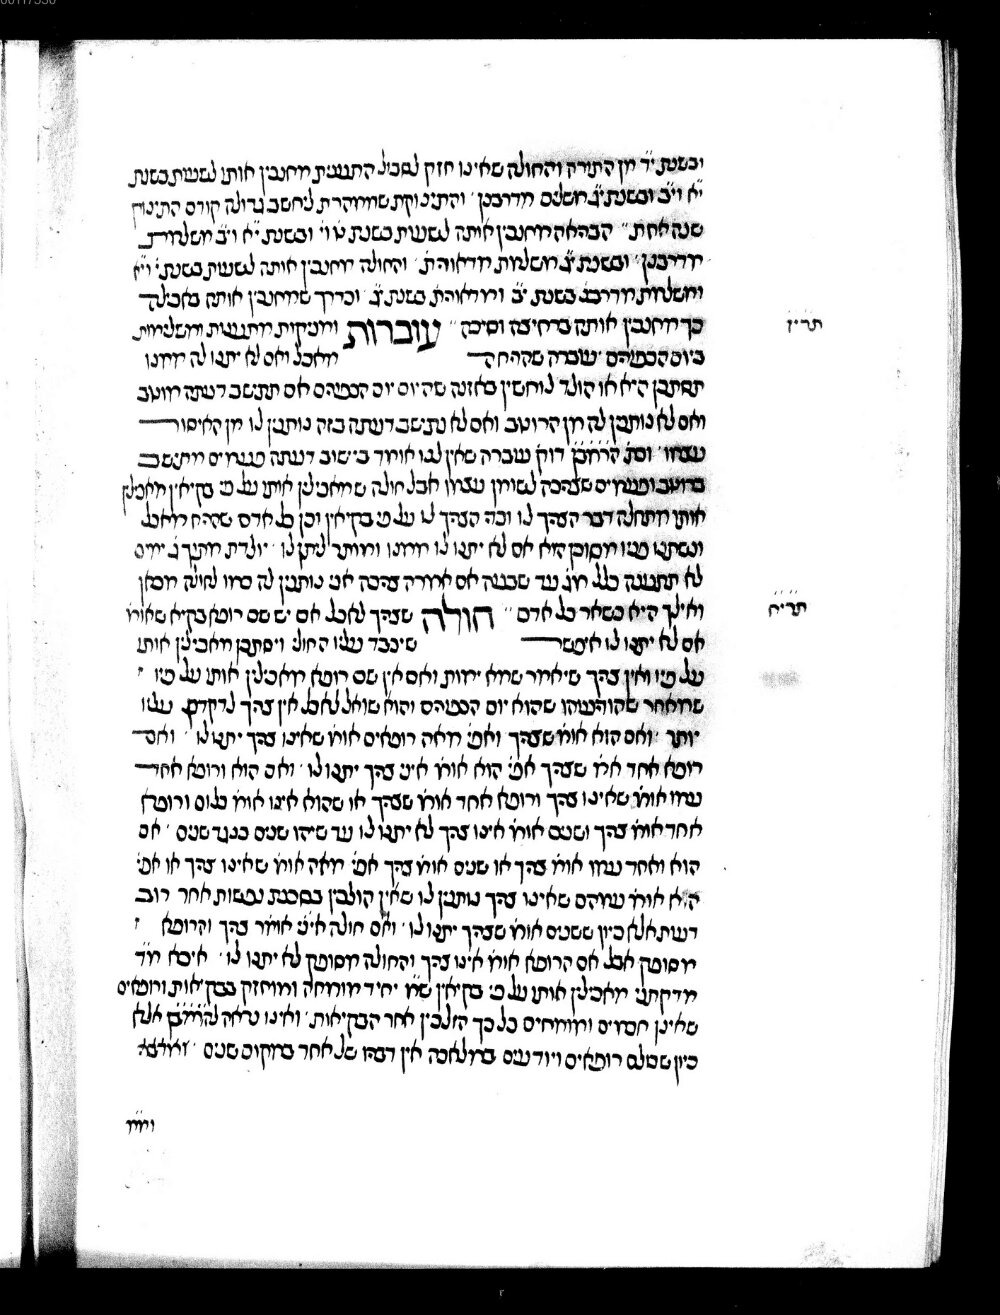 ובשנת י״ד מן התורה והחולה שאינו חזק לסבול התענית מחנכין אותו לשעות בשנת
י״א וי״ב ובשנת י״ג משלים מדרבנן והתינוקת שממהרת ליחשב גדולה קודם התינוק
שנה אחת הבריאה מחנכין אותה לשעות בשנת ט׳ וי׳ ובשנת י״א וי״ב משלמת
מדרבנן ובשנת י״ג משלמת מדאורית׳ והחולה מחנכין אותה לשעות בשנת י׳ וי״א
ומשלמת מדרבנן בשנת י״ב ומדאורית׳ בשנת י״ג וכדרך שמחנכין אותה באכילה
תרי״ז
כך מחנכין אותה ברחיצה וסיכה עוברות ומניקות מתענות ומשלימות
ביום הכפורים עוברה שהריחה מאכל ואם לא יתנו לה ממנו
תסתכן היא או הולד לוחשין באזנה שהיום יום הכפורים אם תתישב דעתה מוטב
ואם לא נותנין לה מן הרוטב ואם לא נתישב דעתה בזה נותנין לו מן האיסור
עצמו וכת׳ הרמב״ן דוק׳ עוברה שאין לנו אומד בישוב דעתה פעמים מתישב
ברוטב ופעמים שצריכה לשומן עצמו אבל חולה שמאכילין אותו על פי בקיאין מאכילין
אותו מתחלה דבר הצריך לו וכדי הצריך לו על פי בקיאין וכן כל אדם שהריח מאכל
ונשתנו פניו מסוכן הוא אם לא יתנו לו ממנו ומותר ליתן לו יולדת מתוך ג׳ ימים
לא תתענה כלל מג׳ עד שבעה אם אמרה צריכה אני נותנין לה כמו לחולה מכאן
תרי״ח
ואילך היא כשאר כל אדם חולה שצריך לאכול אם יש שם רופא בקיא שאומ׳
אם לא יתנו לו איפשר שיכבד עליו החולי ויסתכן מאכילין אותו
על פיו ואין צריך שיאמר שמא ימות ואם אין שם רופא מאכילין אותו על פיו
שמאחר שהודיעוהו שהוא יום הכפורים והוא שואל לאכול אין צריך לדקדק עליו
יותר ואם הוא אומ׳ שצריך ואפי׳ מאה רופאים אומ׳ שאינו צריך יתנו לו ואם
רופא אחד אומ׳ שצריך אפי׳ הוא אומ׳ איני צריך יתנו לו ואם הוא ורופא אחד
עמו אומ׳ שאינו צריך ורופא אחד אומ׳ שצריך או שהוא אינו אומ׳ כלום ורופא
אחד אומ׳ צריך ושנים אומ׳ אינו צריך לא יתנו לו עד שיהו שנים כנגד שנים אם
הוא ואחד עמו אומ׳ צריך או שנים אומ׳ צריך אפי׳ מאה אומ׳ שאינו צריך או אפי׳
הוא אומ׳ עמהם שאינו צריך נותנין לו שאין הולכין בסכנת נפשות אחר רוב
דעות אלא כיון ששנים אומ׳ שצריך יתנו לו ואם חולה אינו אומ׳ צריך והרופא
מסופק אבל אם הרופא אומ׳ אינו צריך והחולה מסופק לא יתנו לו איכא מ״ד
מדקתני מאכילין אותו על פי בקיאין ש״מ יחיד מומחה ומוחזק בבקיאות ורופאים
שאינן חכמים ומומחים כל כך הולכין אחר הבקיאות ואינו נראה להרמב״ן אלא
כיון שכולם רופאים ויודעים במלאכה אין דבריו של אחד במקום שנים